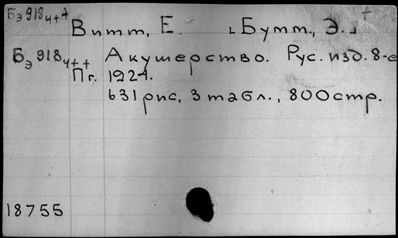 Бэ 918у++
Витт, Е. [Бумм, Э.]
Бэ 918у++ Акушерство. Рус. изд. 8-е
Пг. 1924.
631 рис, 3 табл., 800 стр.
18755